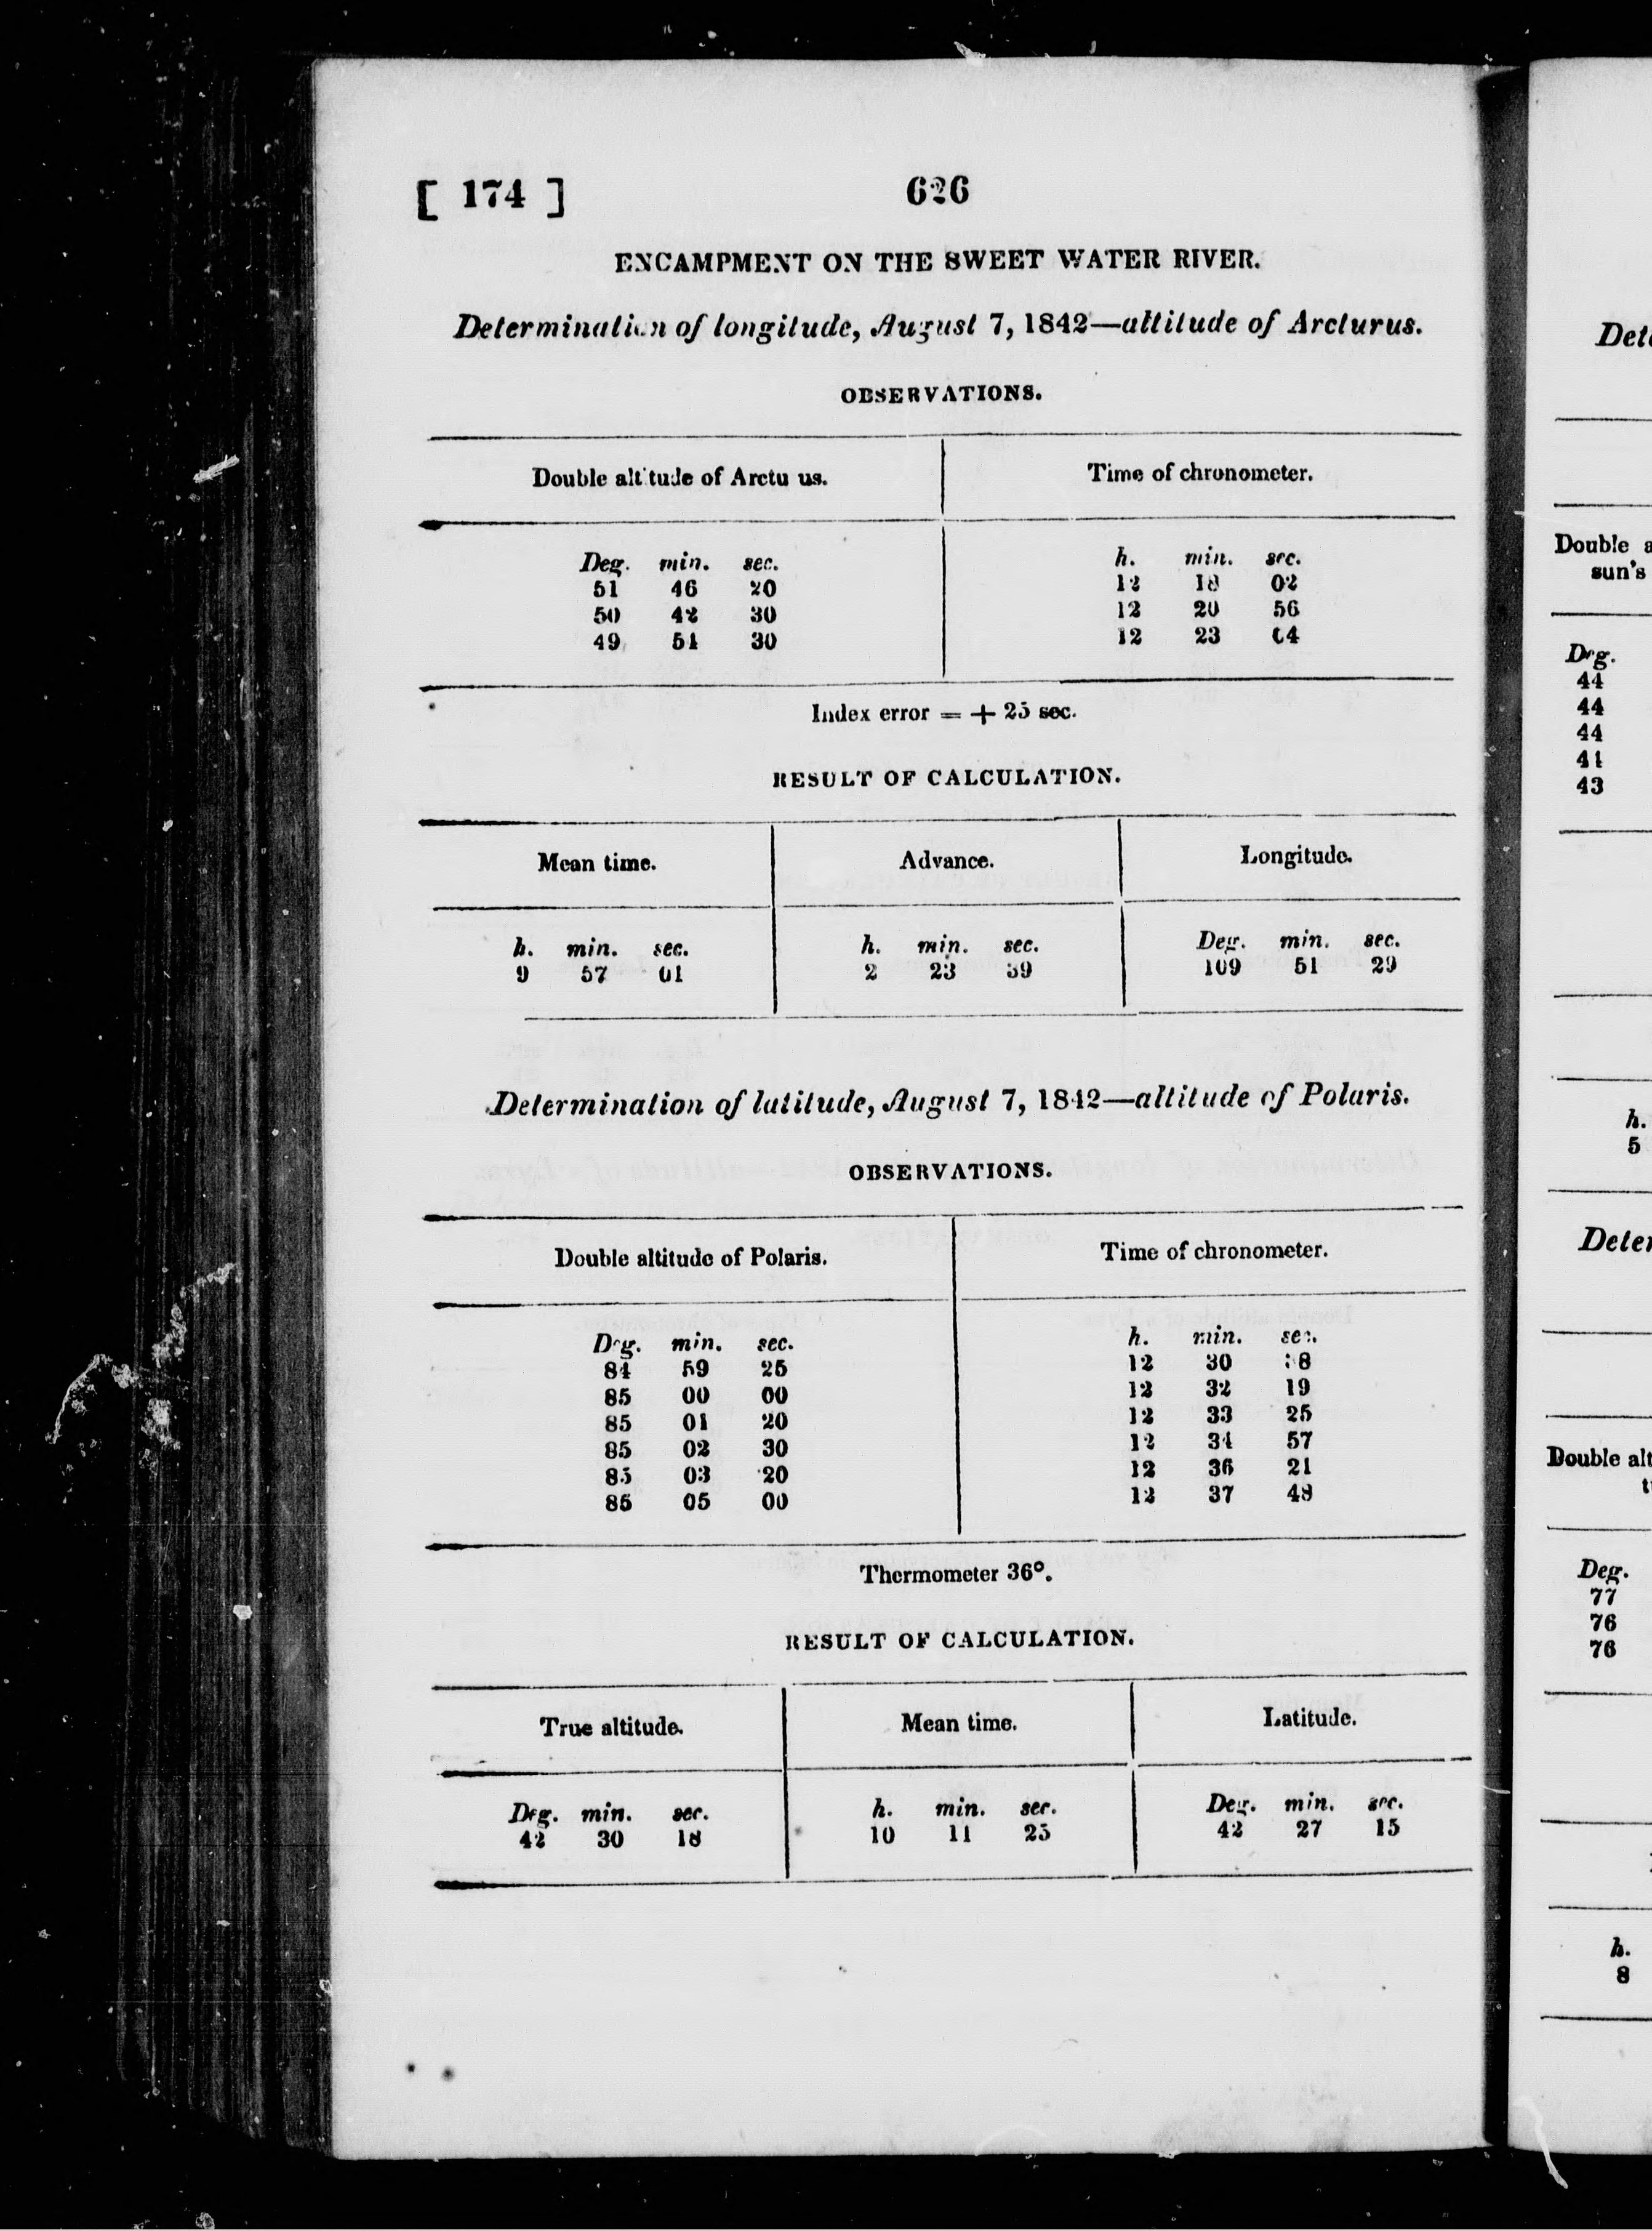 [ 174 ] 626
ENCAMPMENT ON THE SWEET WATER RIVER.
Determination of longitude, August 7, 1842—altitude of Arcturus.
OBSERVATIONS.
Double altitude of Arctu us. Time of chronometer.
Deg. min. sec. h. min. sec.
51 46 20 12 18 02
50 42 30 12 20 56
49 51 30 12 23 04
Index error = + 25 sec.
RESULT OF CALCULATION.
Mean time. Advance. Longitude.
h. min. sec. h. min. sec. Deg. min. sec.
9 57 01 2 23 39 109 51 29
Determination of latitude, August 7, 1842—altitude of Polaris.
OBSERVATIONS.
Double altitude of Polaris. Time of chronometer.
Deg. min. sec. h. min. sec.
84 59 25 12 30
85 00 00 12 32 19
85 01 20 12 33 25
85 02 30 12 34 57
85 03 20 12 36 21
85 05 00 12 37 48
Thermometer 36°.
RESULT OF CALCULATION.
True altitude. Mean time. Latitude.
Deg. min. sec. h. min. sec. Deg. min. sec.
42 30 18 10 11 25 42 27 15
Double a
sun's
Deg.
44
44
44
41
43
h.
5
Double alt
Deg.
77
76
76
h.
8